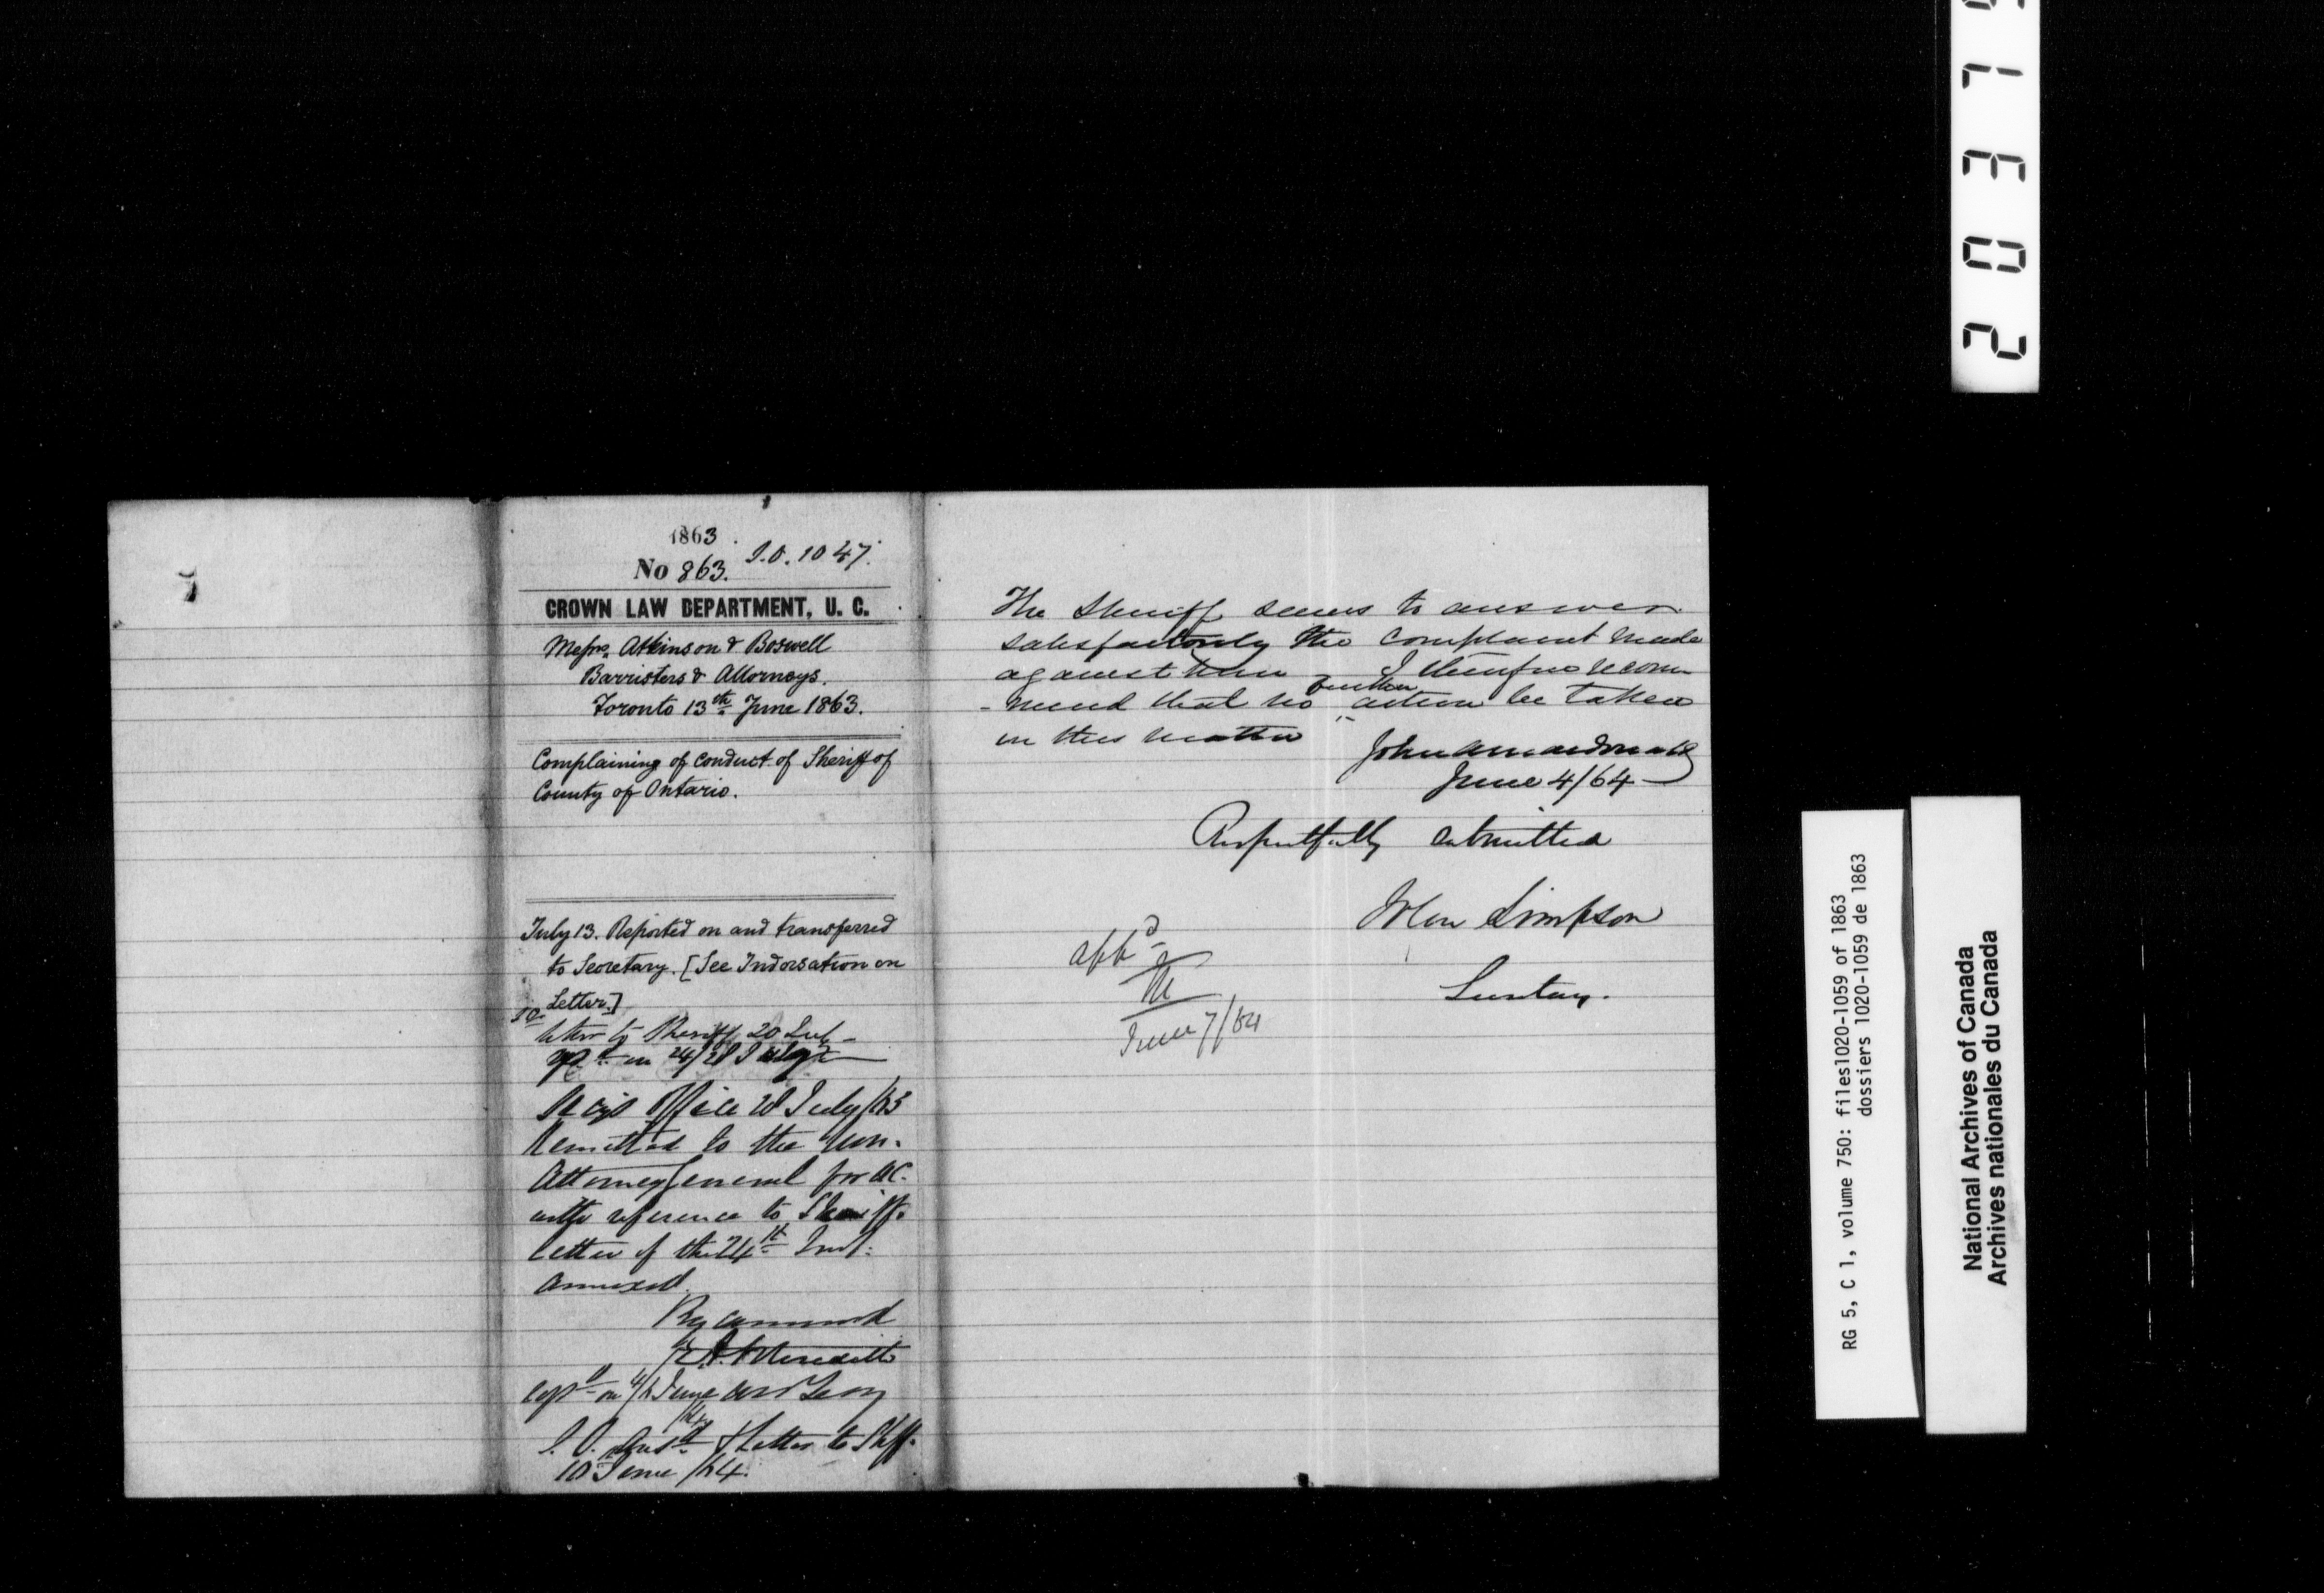 1863.
No 863. S.O. 1047.
CROWN LAW DEPARTMENT, U. C.
Messrs. Atkinson & Boswell
Barristers & Attorneys.
Toronto 13th June 1863.
Complaining of conduct of Sheriff of
County of Ontario.
July 13. Reported on and transferred
to Secretary. [See Indorsation on
Letter.]
letter to Sheriff 20 July
on 24/28 July
Secy's Office 28 July/63
Remitted to the Hon.
Attorney General for UC.
with reference to Sheriff's
letter of the 24th Inst.
annexed.
By command
E. A. Meredith
on 4/6 June
S.O. & Letter to Shff.
10 June /64.
The Sheriff seems to answer
satisfactorily the complaint made
against him - I therefore recom
- mend that no further action be taken
in this matter
John A Macdonald
June 4/64
Respectfully submitted
John Simpson
Secretary.
appd
M
June 7/64
2 0 3 7
RG 5, C 1, volume 750: files1020-1059 of 1863
dossiers 1020-1059 de 1863
National Archives of Canada
Archives nationales du Canada